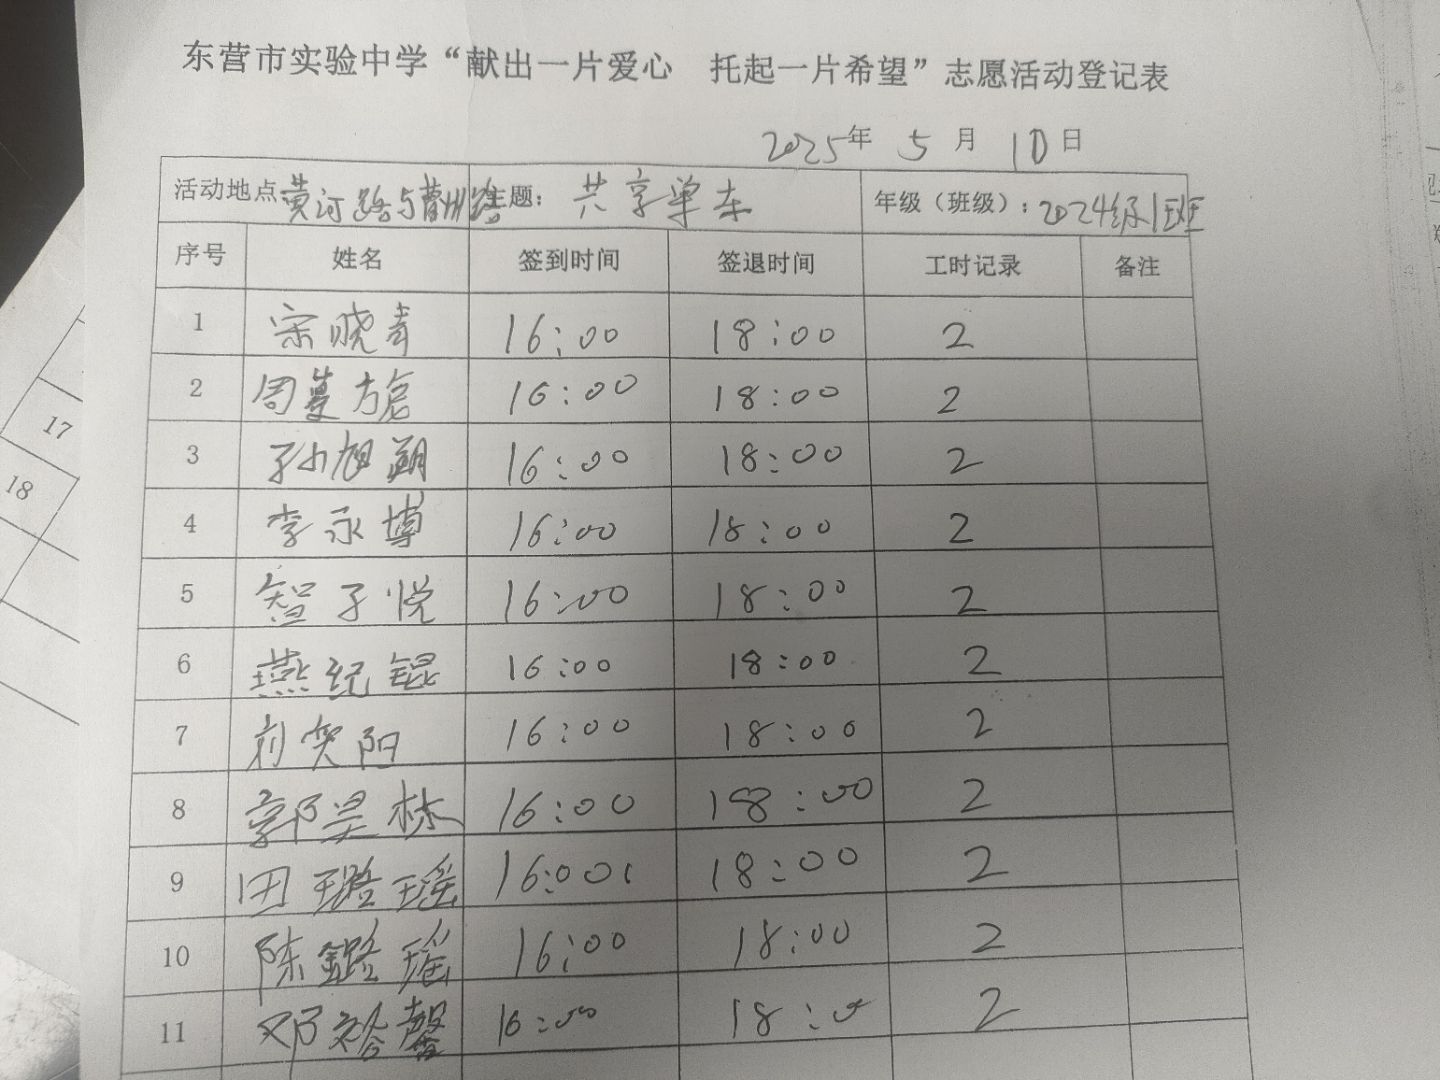 东营市实验中学“献出一片爱心 托起一片希望”志愿活动登记表
2025年 5 月 10 日
活动地点 黄河路与曹州路 主题： 共享单车 年级（班级）：2024级1班
序号 姓名 签到时间 签退时间 工时记录 备注
1 宋晓青 16:00 18:00 2
2 周蔓方 16:00 18:00 2
3 孙旭朔 16:00 18:00 2
4 李永博 16:00 18:00 2
5 智子悦 16:00 18:00 2
6 燕纪锟 16:00 18:00 2
7 刘奕阳 16:00 18:00 2
8 郭昊林 16:00 18:00 2
9 田璐瑶 16:00 18:00 2
10 陈璐瑶 16:00 18:00 2
11 邓裕馨 16:00 18:0 2
17
18